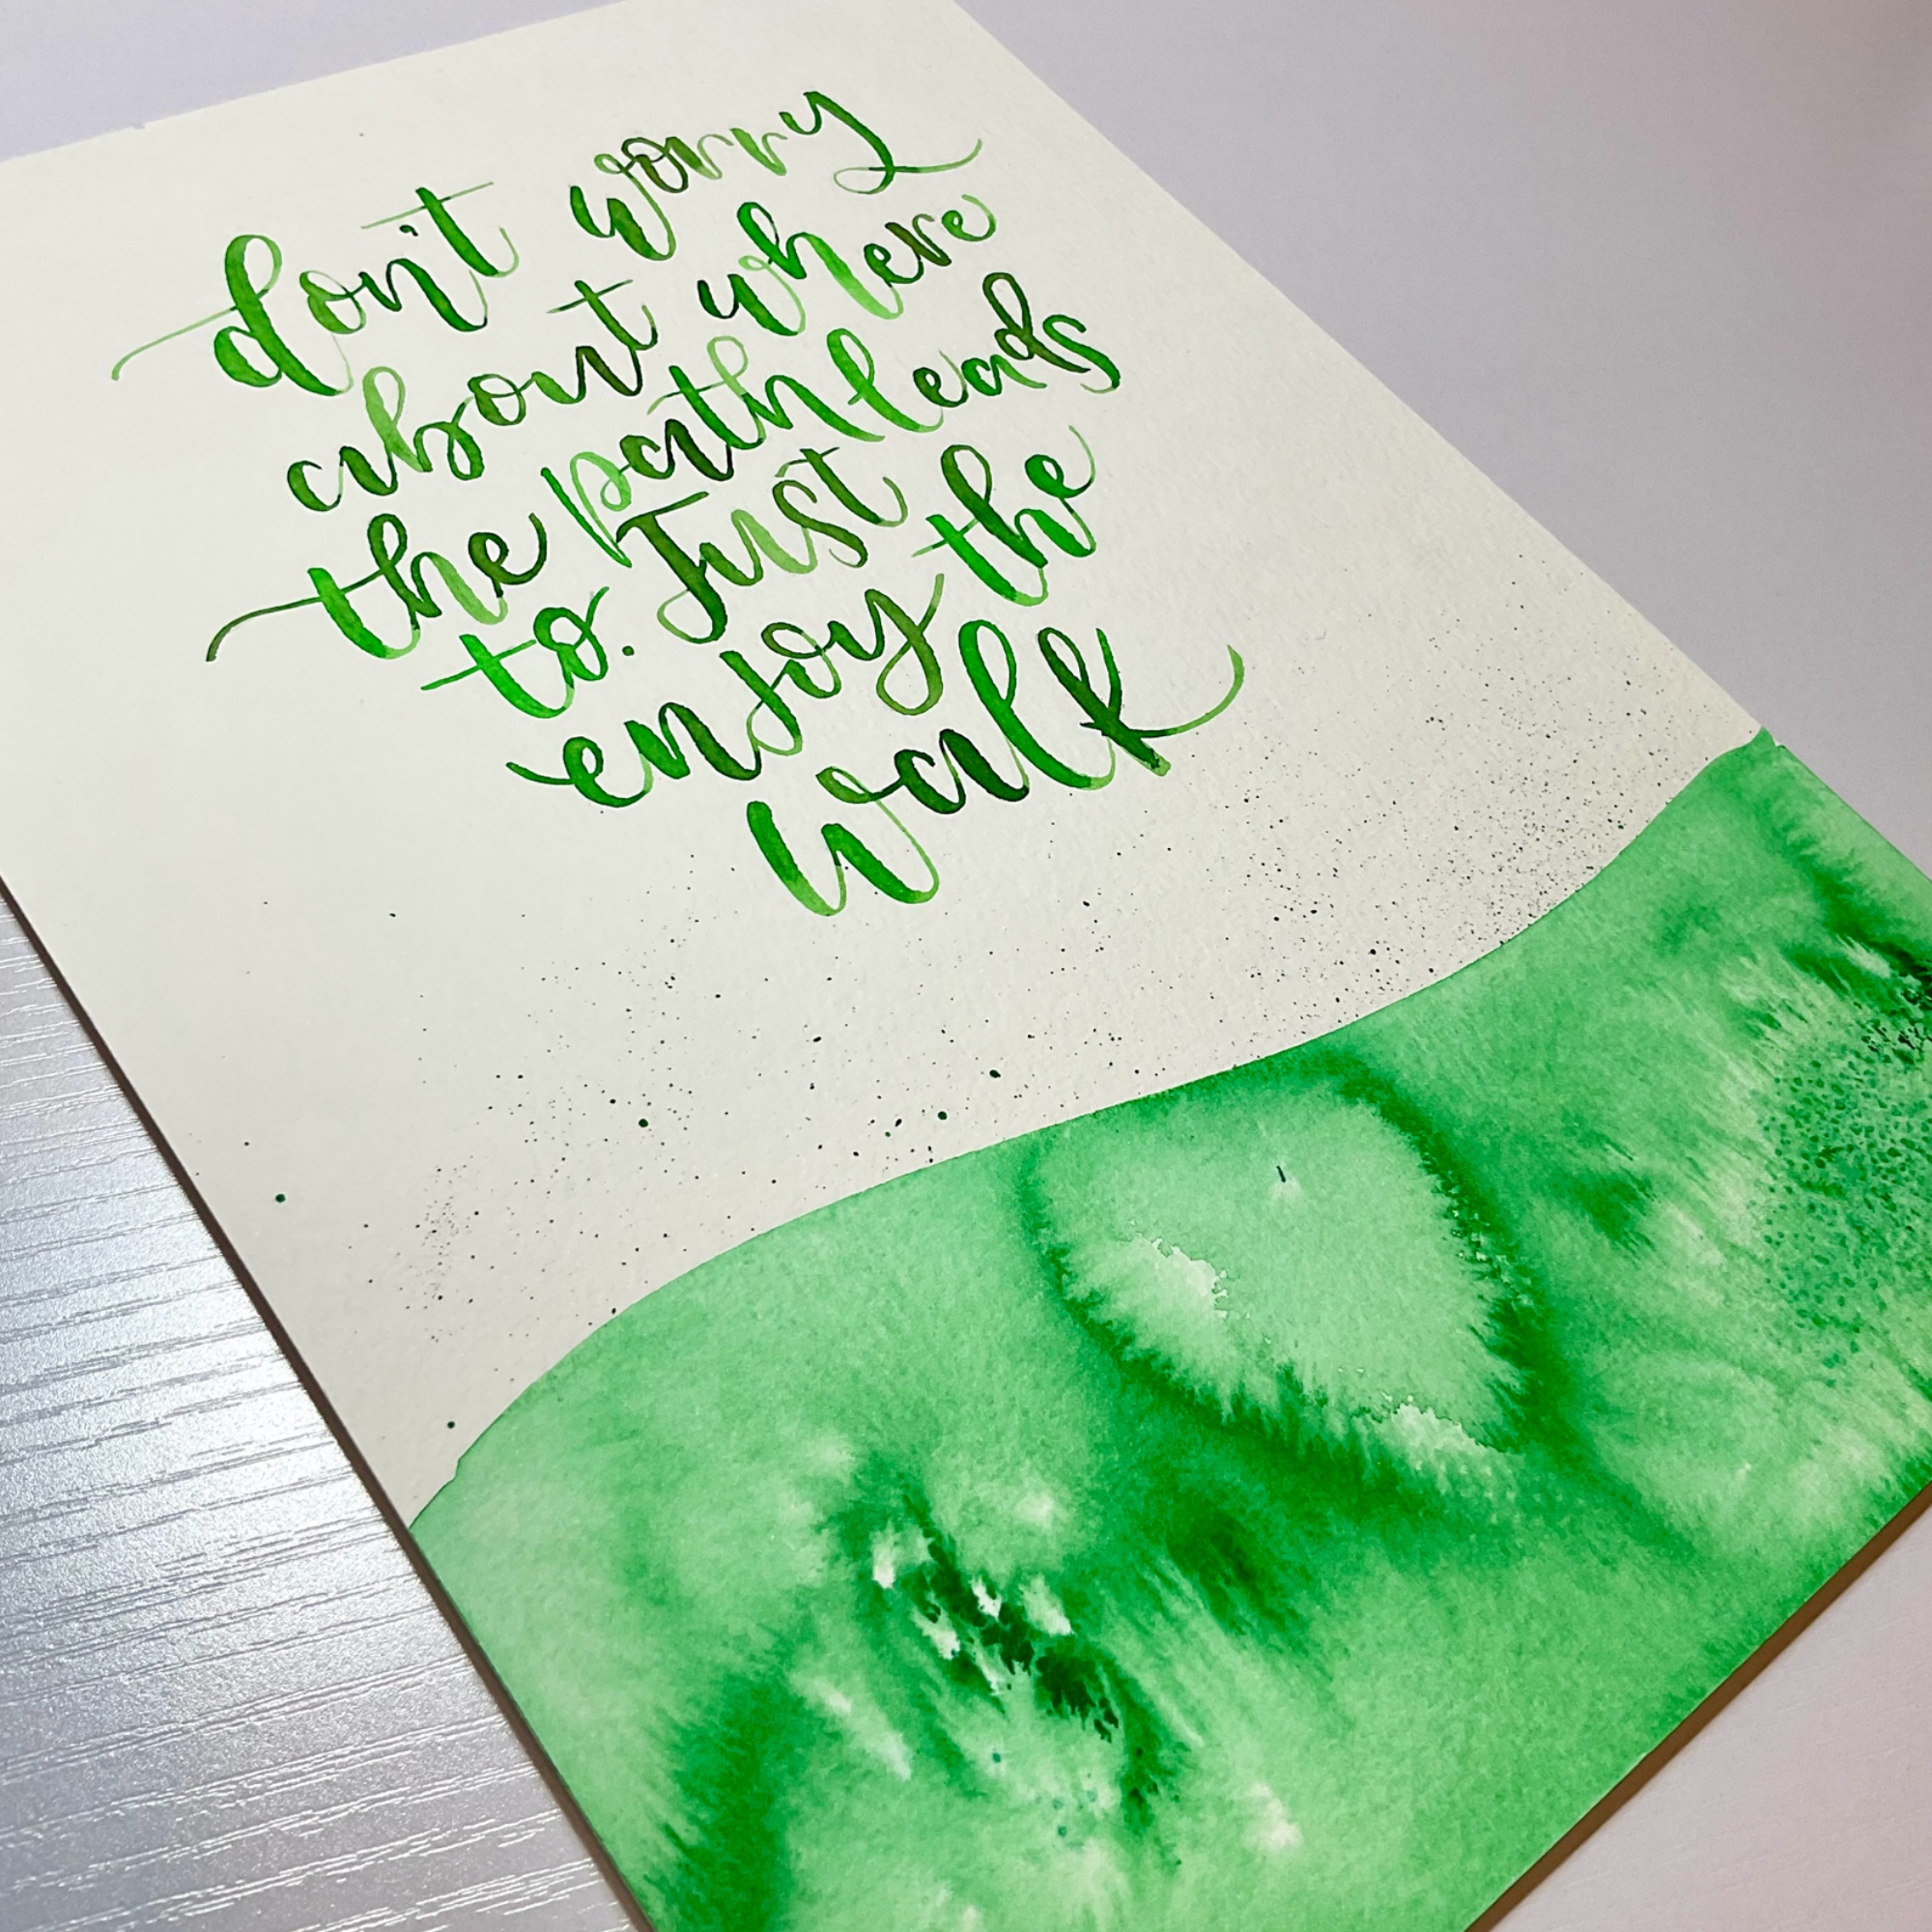 don't worry
about where
the path leads
to. Just
enjoy the
walk